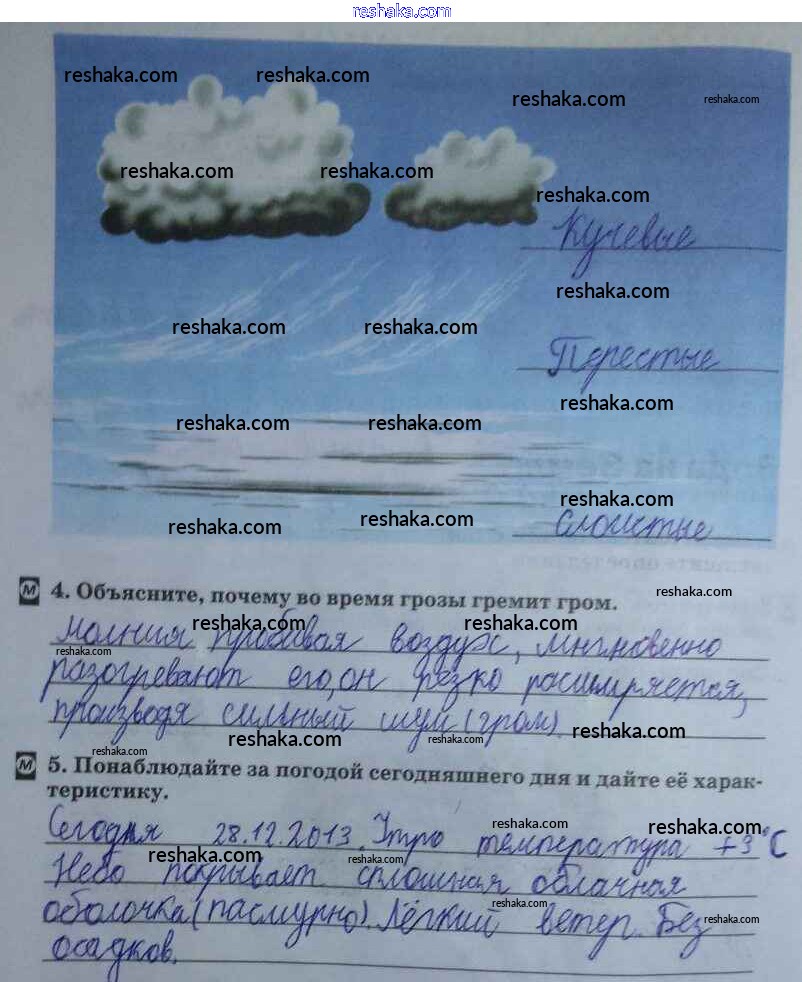 reshaka.com
reshaka.com reshaka.com
reshaka.com reshaka.com
reshaka.com reshaka.com
reshaka.com
Кучевые
reshaka.com
reshaka.com reshaka.com
Перестые
reshaka.com
reshaka.com reshaka.com
reshaka.com
reshaka.com reshaka.com
Слоистые
М 4. Объясните, почему во время грозы гремит гром.
reshaka.com
reshaka.com reshaka.com
Молния пробивая воздух, мнгновенно
reshaka.com
разогревают его, он резко расширяется,
производя сильный шум (гром)
reshaka.com reshaka.com reshaka.com
reshaka.com
М 5. Понаблюдайте за погодой сегодняшнего дня и дайте её харак-
теристику.
reshaka.com reshaka.com
Сегодня 28.12.2013. Утро температура +3°C
reshaka.com reshaka.com
Небо покрывает сплошная облачная
reshaka.com
оболочка (пасмурно). Лёгкий ветер. Без
reshaka.com
осадков.